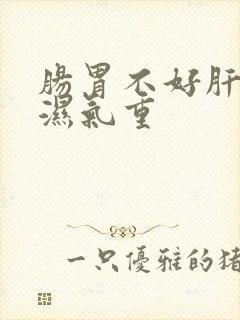 腸胃不好肝
濕氣重
一只優雅的豬